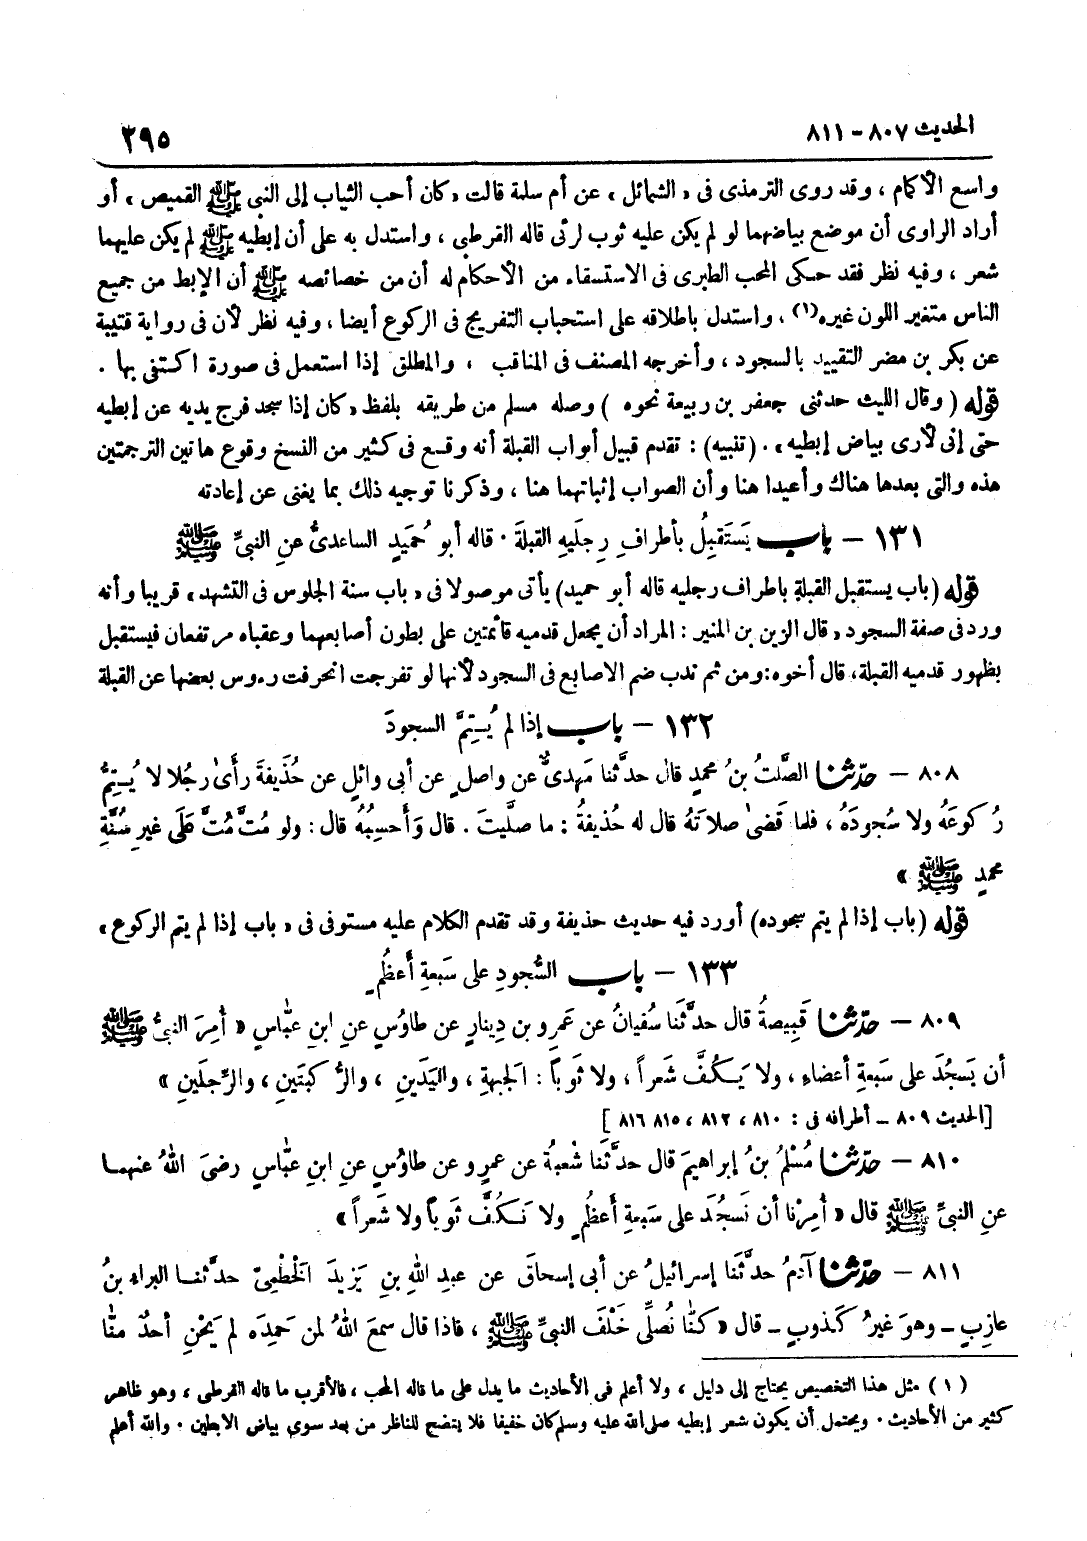 الحديث ٨٠٧ – ٨١١
٢٩٥
واسع الأكمام ، وقد روى الترمذى فى « الشمائل ، عن أم سلمة قالت « كان أحب الثياب إلى النبى ﷺ القميص ، أو
أراد الراوى أن موضع بياضهما لو لم يكن عليه ثوب لرئى قاله القرطبي ، واستدل به على أن إبطيه ﷺ لم يكن عليهما
شعر ، وفيه نظر فقد حكى المحب الطبرى فى الاستسقاء من الأحكام له أن من خصائصه ﷺ أن الإبط من جميع
الناس متغير اللون غيره(١) ، واستدل باطلاقه على استحباب التفريج فى الركوع أيضا ، وفيه نظر لأن فى رواية قتيبة
عن بكر بن مضر التقييد بالسجود ، وأخرجه المصنف فى المناقب ، والمطلق إذا استعمل فى صورة اكتفى بها .
قوله ( وقال الليث حدثنى جعفر بن ربيعة نحوه ) وصله مسلم من طريقه بلفظ « كان إذا سجد فرج يديه عن إبطيه
حتى إنى لأرى بياض إبطيه ، . (تنبيه) : تقدم قبيل أبواب القبلة أنه وقع فى كثير من النسخ وقوع هاتين الترجمتين
هذه والتى بعدها هناك وأعيدا هنا وأن الصواب إثباتهما هنا ، وذكرنا توجيه ذلك بما يغنى عن إعادته
١٣١ – باب يَستَقبِلُ بأطرافِ رِجلَيهِ القبلةَ . قاله أبو حُمَيدٍ الساعدىُّ عنِ النبىِّ ﷺ
قوله (باب يستقبل القبلة باطراف رجليه قاله أبو حميد) يأتى موصولا فى « باب سنة الجلوس فى التشهد ، قريبا وأنه
ورد فى صفة السجود ، قال الزين بن المنير : المراد أن يجعل قدميه قائمتين على بطون أصابعهما وعقباه مرتفعان فيستقبل
بظهور قدميه القبلة ، قال أخوه : ومن ثم ندب ضم الاصابع فى السجود لأنها لو تفرجت انحرفت رءوس بعضها عن القبلة
١٣٢ – باب إذا لم يُتِمَّ السجودَ
٨٠٨ – حدّثنا الصَّلتُ بنُ محمدٍ قال حدَّثنا مَهدىٌّ عن واصلٍ عن أبى وائلٍ عن حُذَيفةَ رأَىٰ رجُلا لا يُتِمُّ
رُكوعَهُ ولا سُجودَهُ ، فلما قَضىٰ صلاتَهُ قال له حُذيفةُ : ما صلَّيتَ . قال وَأَحسِبُهُ قال : ولو مُتَّ مُتَّ عَلَى غيرِ سُنَّةِ
محمدٍ ﷺ »
قوله (باب إذا لم يتم سجوده) أورد فيه حديث حذيفة وقد تقدم الكلام عليه مستوفى فى « باب إذا لم يتم الركوع ،
١٣٣ – باب السُّجودِ على سَبعةِ أَعظُمٍ
٨٠٩ – حدّثنا قَبِيصةُ قال حدَّثَنا سُفيانُ عن عَمرِو بن دِينارٍ عن طاوُسٍ عنِ ابنِ عبّاسٍ « أُمِرَ النبىُّ ﷺ
أن يَسجُدَ على سَبعةِ أعضاءٍ ، ولا يَكُفَّ شَعراً ، ولا ثَوباً : الجَبهةِ ، واليَدَينِ ، والرُّكبَتَينِ ، والرِّجلَينِ »
[الحديث ٨٠٩ – أطرافه فى : ٨١٠ ، ٨١٢ ، ٨١٥ ٨١٦ ]
٨١٠ – حدّثنا مُسْلمُ بنُ إبراهيمَ قال حدَّثَنا شُعبةُ عن عمرٍو عن طاوُسٍ عنِ ابنِ عبّاسٍ رضىَ اللهُ عنهما
عنِ النبىِّ ﷺ قال « أُمِرْنا أن نَسجُدَ على سَبعةِ أَعظُمٍ ولا نَكُفَّ ثَوباً ولا شَعراً »
٨١١ – حدّثنا آدَمُ حدَّثَنا إسرائيلُ عن أبى إسحاقَ عن عبدِ اللهِ بنِ يَزيدَ الخَطْمِىّ حدَّثنا البراء بنُ
عازِبٍ – وهوَ غيرُ كَذوبٍ – قال « كنّا نُصلِّى خَلْفَ النبىِّ ﷺ ، فاذا قال سمعَ اللهُ لمن حَمِدَه لم يَحْنِ أحدٌ منّا
( ١ ) مثل هذا التخصيص يحتاج إلى دليل ، ولا أعلم فى الأحاديث ما يدل على ما قاله المحب ، فالأقرب ما قاله القرطبى ، وهو ظاهر
كثير من الأحاديث . ويحتمل أن يكون شعر إبطيه صلى الله عليه وسلم كان خفيفا فلا يتضح للناظر من بعد سوى بياض الابطين . والله أعلم